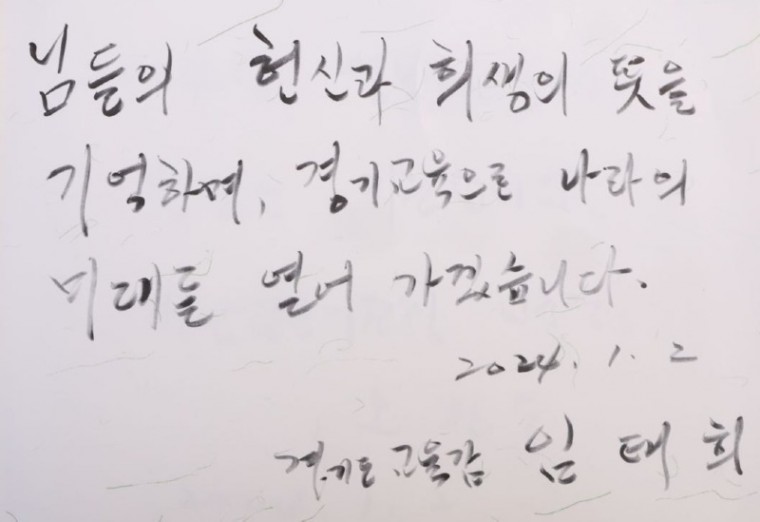 님들의 헌신과 희생의 뜻을
기억하며, 경기교육으로 나라의
미래를 열어 가겠습니다.
2024. 1. 2
경기도교육감 임태희